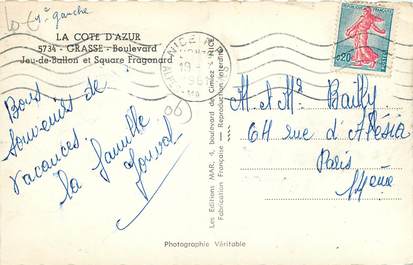 1º gauche
LA COTE D'AZUR
5734 - GRASSE - Boulevard
Jeu-de-Ballon et Square Fragonard
Bons
souvenirs de
vacances.
la famille
Les Editions MAR, 4, boulevard de Cimiez - NICE
Fabrication Française - Reproduction interdite
NICE
0,20
M. et Mme Bailly
64 rue d'Alésia
Paris
14ème
Photographie Véritable